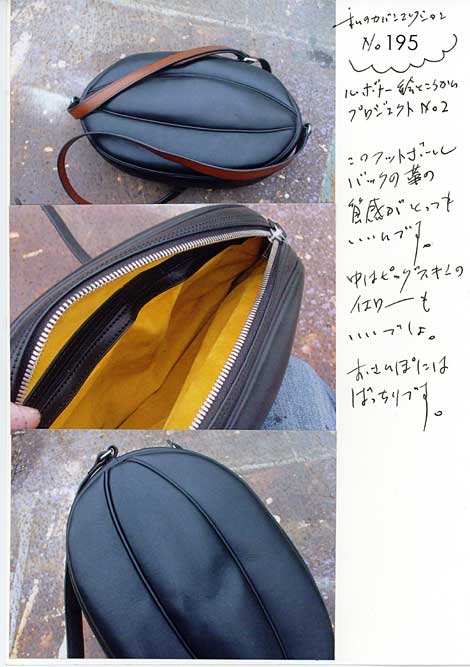 私のカバンコレクション
No 195
ルボナー絵ところから
プロジェクト No 2
このフットボール
バックの革の
質感がとっても
いいんです。
中はピッグスキンの
イエローも
いいでしょ。
おさんぽには
ばっちりです。